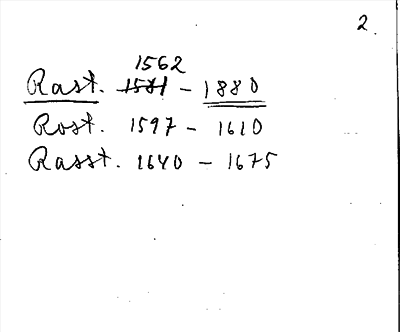 2.
1562
Rast. 1581 - 1880
Rost. 1597 - 1610
Rasst. 1640 - 1675